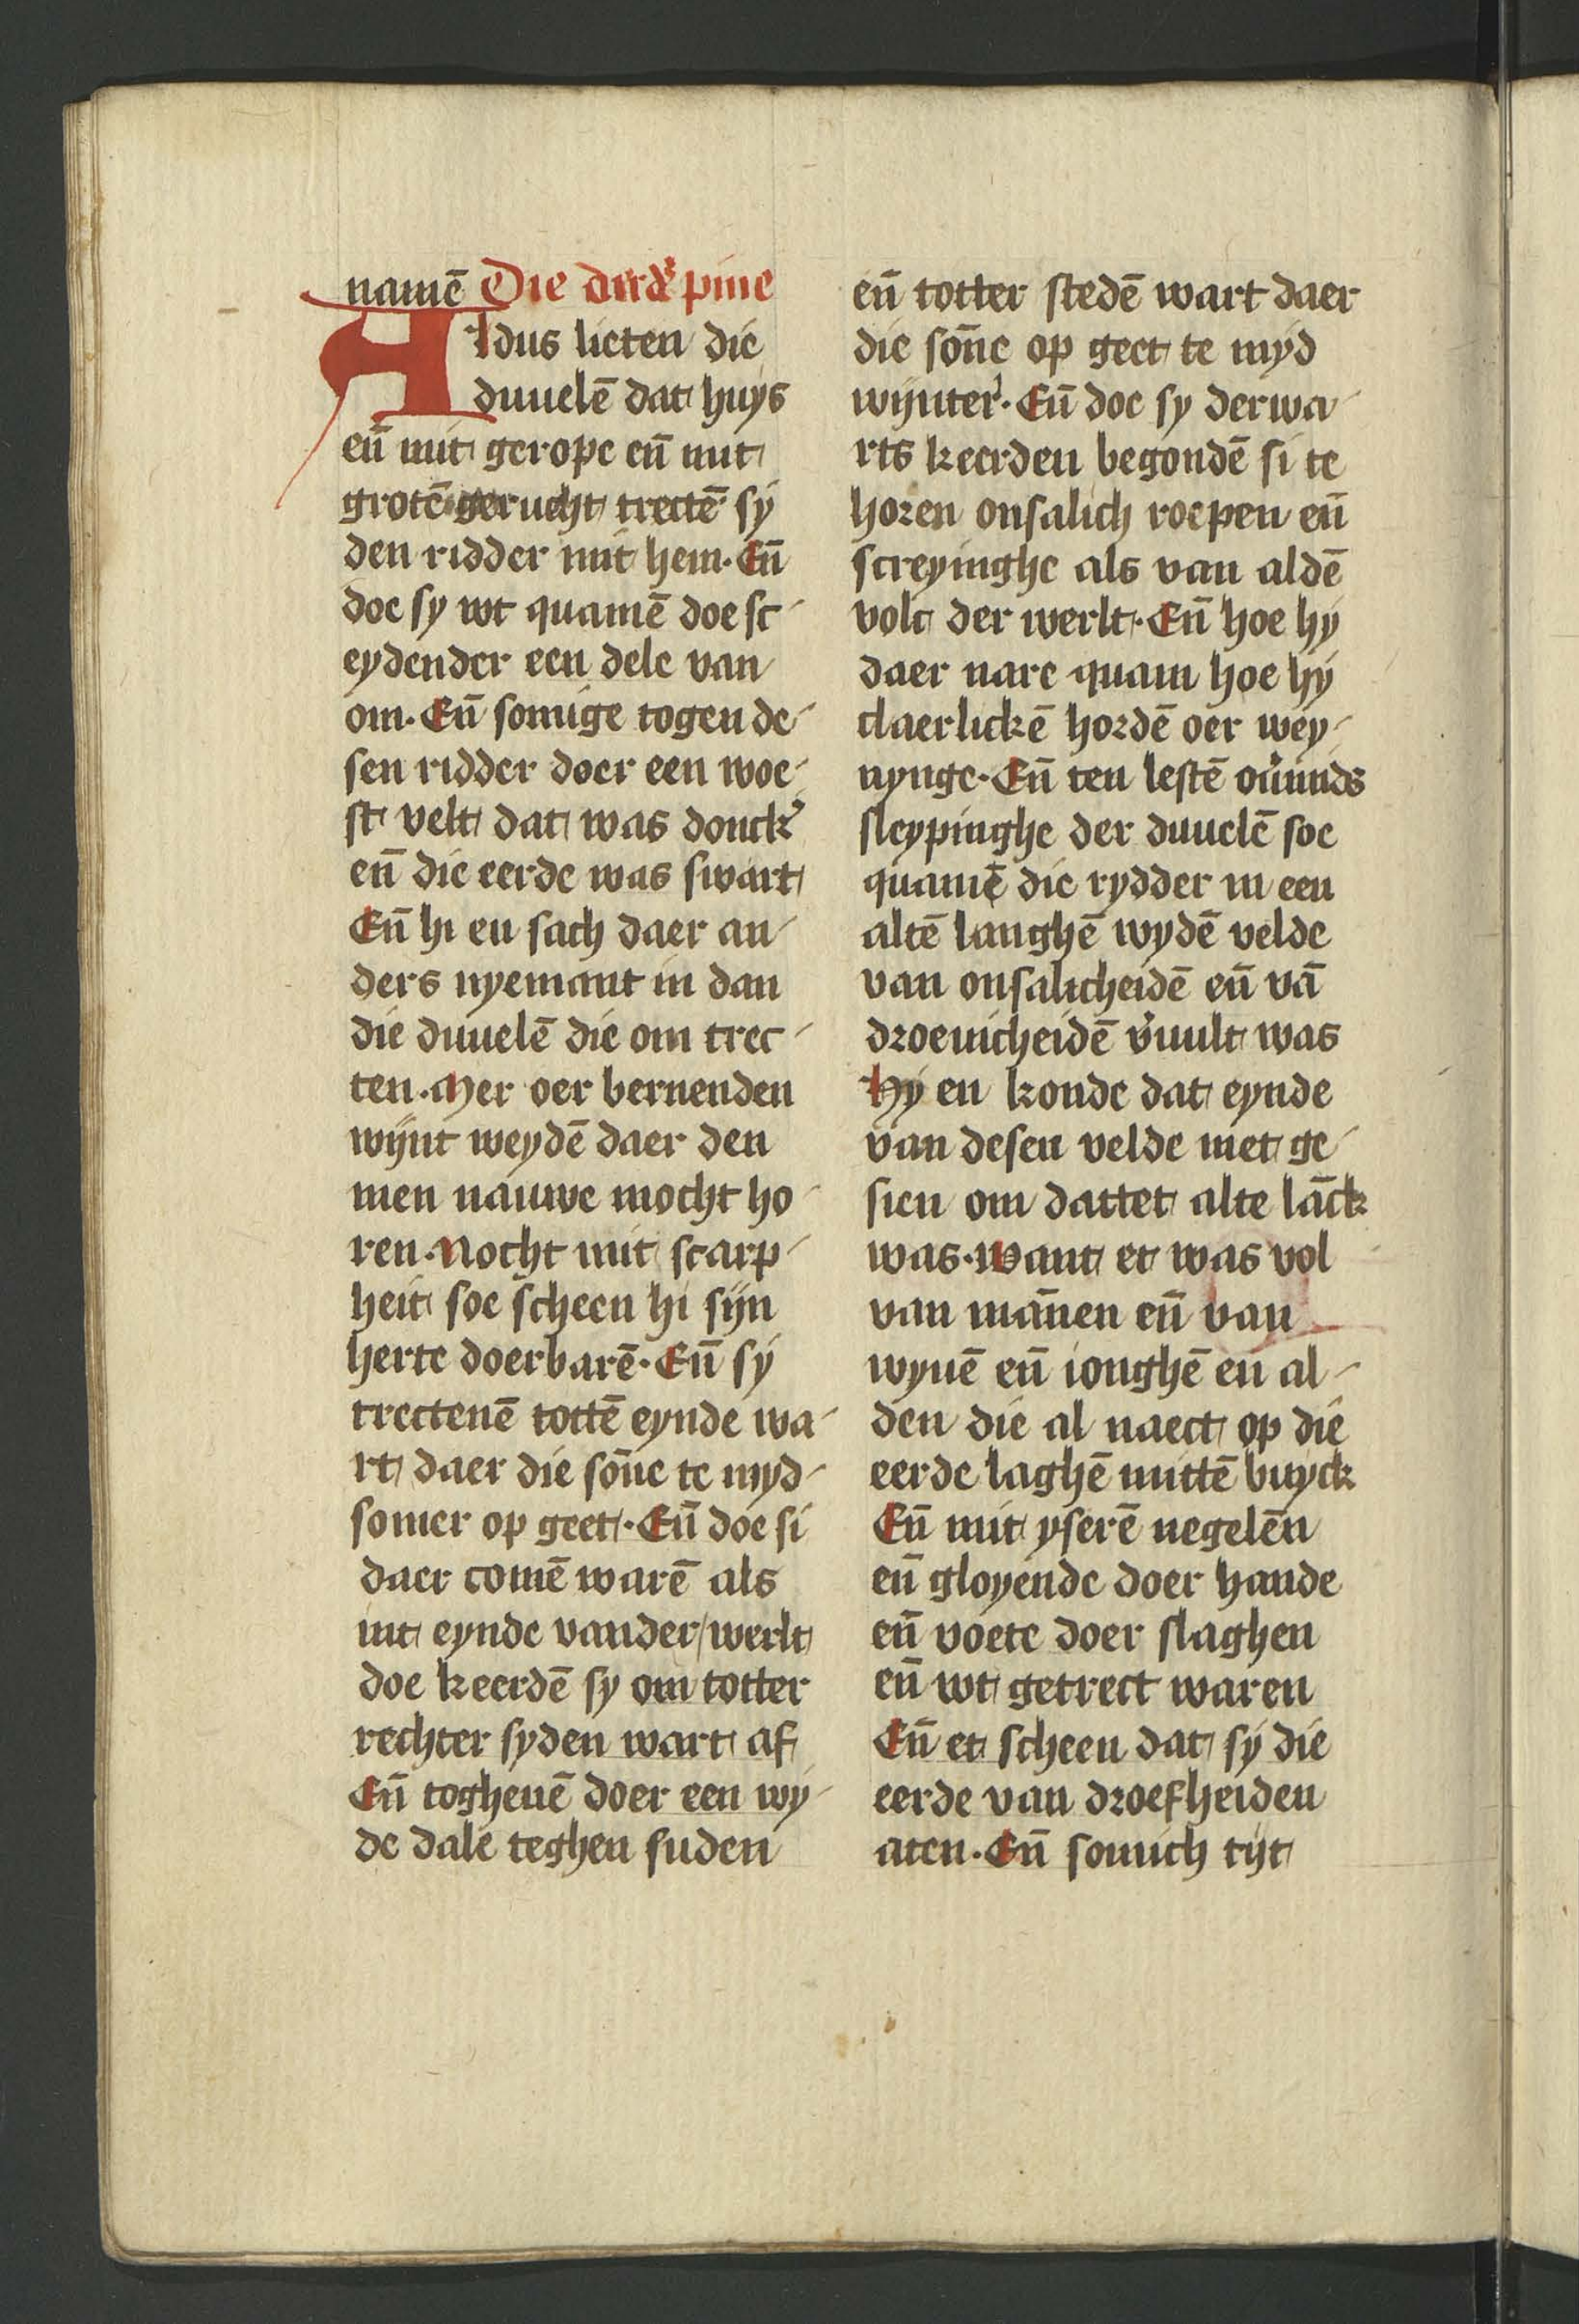 namē Die derdʼ pine
Aldus lieten die
duuelē dat huys
en̄ mit gerope en̄ mit
grotē gerucht trectē sy
den ridder mit hem. En̄
doe sy wt quamē doe sc
eydender een dele van
om. En̄ somige togen de
sen ridder doer een woe
st velt dat was donckʼ
en̄ die eerde was swart
En̄ hi en sach daer an
ders nyemant in dan
die duuelē die om trec
ten. Mer oer bernenden
wijnt weydē daer den
men nauwe mocht ho
ren. Nocht mit scarp
heit soe scheen hi sijn
herte doerbarē. En̄ sy
trectenē tottē eynde wa
rt daer die son̄e te myd
somer op geet. En̄ doe si
daer comē warē als
int eynde vander werlt
doe keerdē sy om totter
rechter syden wart af
En̄ toghenē doer een wy
de dale teghen suden
en̄ totter stedē wart daer
die son̄e op geet te myd
wijnterʼ. En̄ doe sy derwa
rts keerden begondē si te
horen onsalich roepen en̄
screyinghe als van aldē
volc der werlt. En̄ hoe hy
daer nare quam hoe hy
claerlickē hordē oer wey
nynge. En̄ ten lestē ou̓mids
sleypinghe der duuelē soe
quamē die rydder in een
altē langhē wydē velde
van onsalicheidē en̄ vā
droeuicheidē v̓uult was
Hy en konde dat eynde
van desen velde niet ge
sien om dattet alte lāck
was. Want et was vol
van mān̄en en̄ van
wyuē en̄ ionghē en̄ al
den die al naect op die
eerde laghē mittē buyck
En̄ mit yserē negelēn
en̄ gloyende doer hande
en̄ voete doer slaghen
en̄ wt getrect waren
En̄ et scheen dat sy die
eerde van droefheiden
aten. En̄ somich tijt